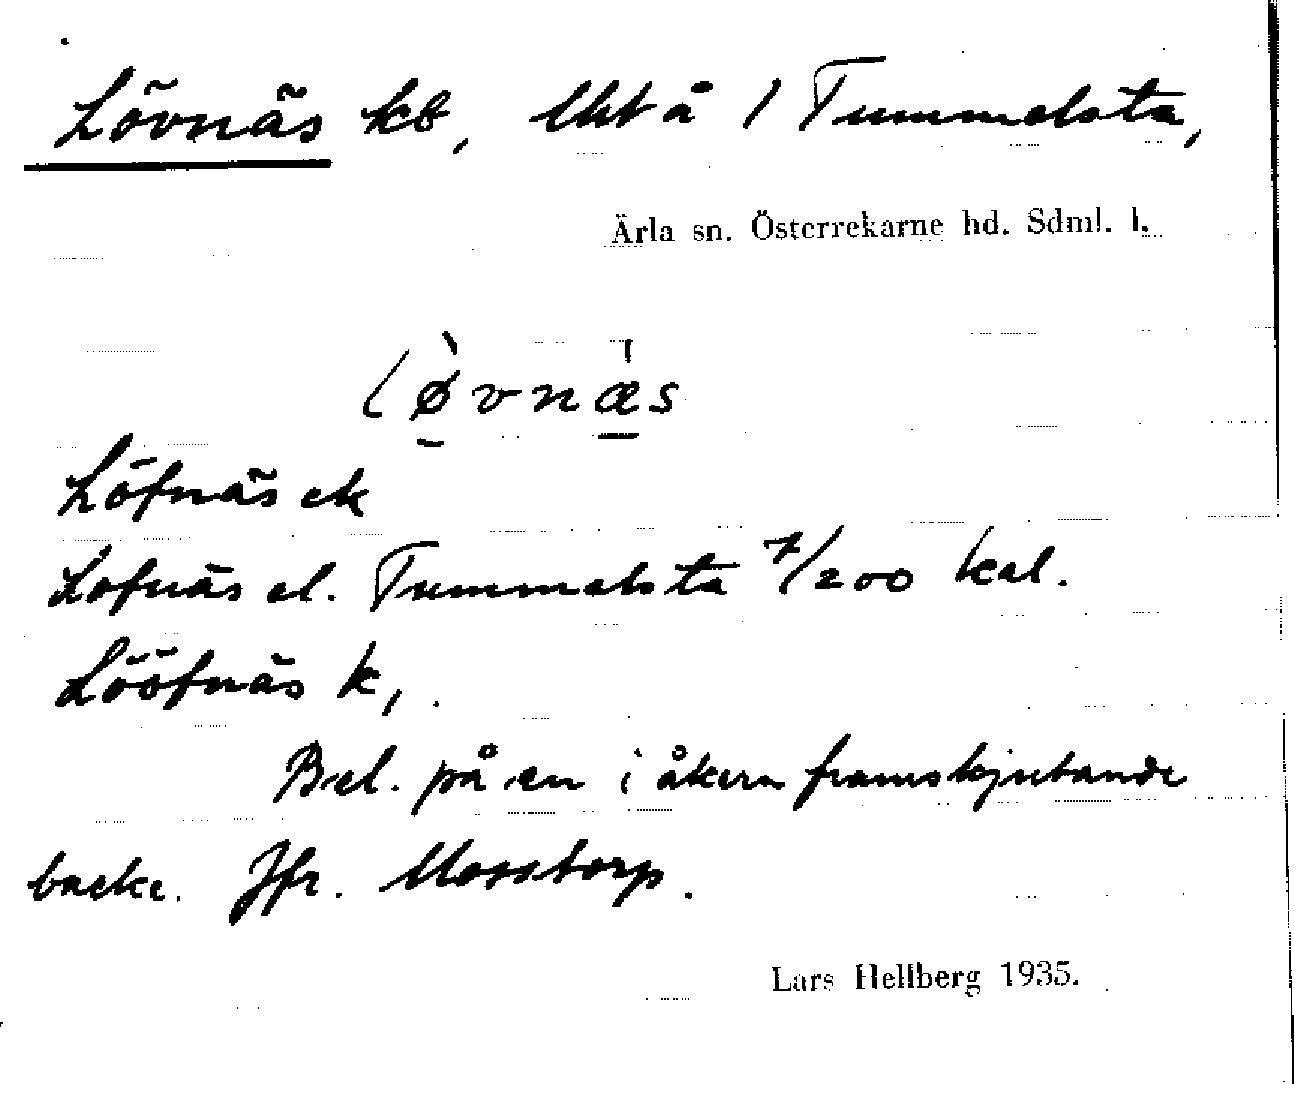 Lövnäs kb, Uht å 1 Tummelsta,
Ärla sn. Österrekarne hd. Sdml. l.
lø̀vnæs
Löfnäs ek
Lofnäs el. Tummelsta 7/200 kal.
Lööfnäs k,.
Bel. på en i åkern framskjutande
backe. Jfr. Mosstorp.
Lars Hellberg 1935.